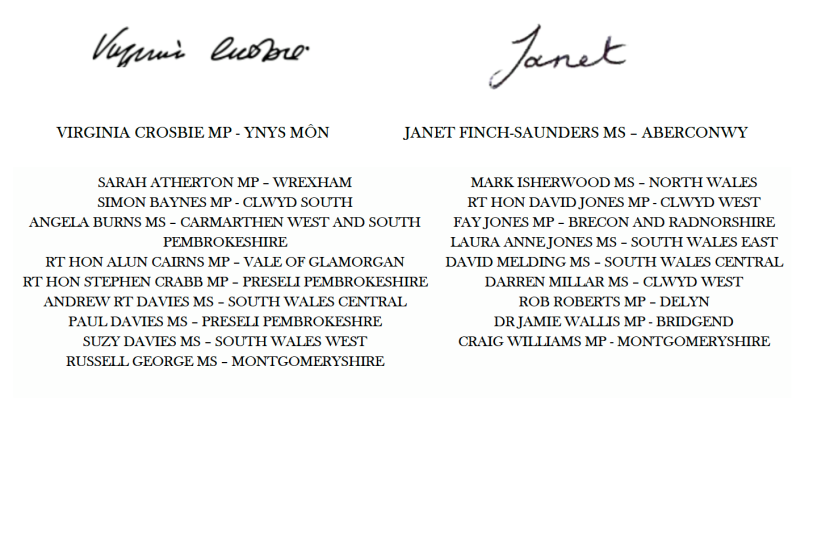 Virginia Crosbie
Janet
VIRGINIA CROSBIE MP - YNYS MÔN
JANET FINCH-SAUNDERS MS – ABERCONWY
SARAH ATHERTON MP – WREXHAM
SIMON BAYNES MP - CLWYD SOUTH
ANGELA BURNS MS – CARMARTHEN WEST AND SOUTH
PEMBROKESHIRE
RT HON ALUN CAIRNS MP – VALE OF GLAMORGAN
RT HON STEPHEN CRABB MP – PRESELI PEMBROKESHIRE
ANDREW RT DAVIES MS – SOUTH WALES CENTRAL
PAUL DAVIES MS – PRESELI PEMBROKESHRE
SUZY DAVIES MS – SOUTH WALES WEST
RUSSELL GEORGE MS – MONTGOMERYSHIRE
MARK ISHERWOOD MS – NORTH WALES
RT HON DAVID JONES MP - CLWYD WEST
FAY JONES MP – BRECON AND RADNORSHIRE
LAURA ANNE JONES MS – SOUTH WALES EAST
DAVID MELDING MS – SOUTH WALES CENTRAL
DARREN MILLAR MS – CLWYD WEST
ROB ROBERTS MP – DELYN
DR JAMIE WALLIS MP - BRIDGEND
CRAIG WILLIAMS MP - MONTGOMERYSHIRE